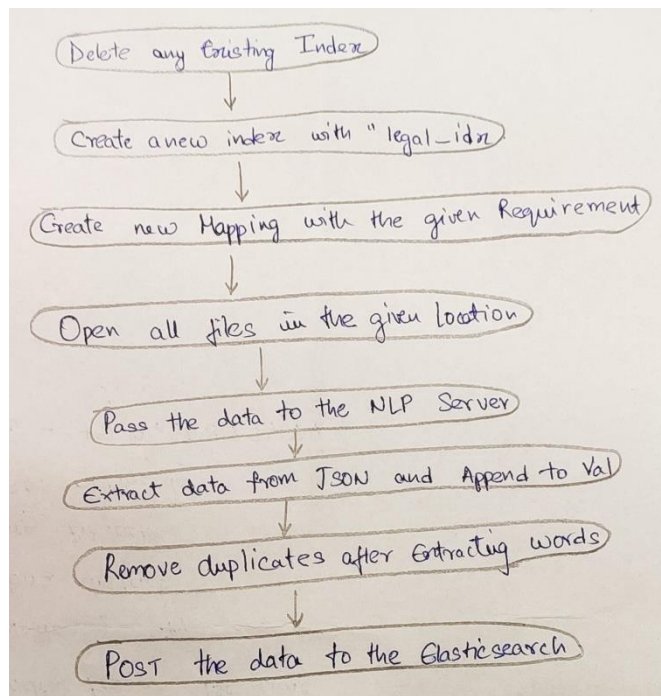 Delete any Existing Index
Create a new index with "legal_idx
Create new Mapping with the given Requirement
Open all files in the given Location
Pass the data to the NLP Server
Extract data from JSON and Append to Val
Remove duplicates after Extracting words
POST the data to the Elasticsearch